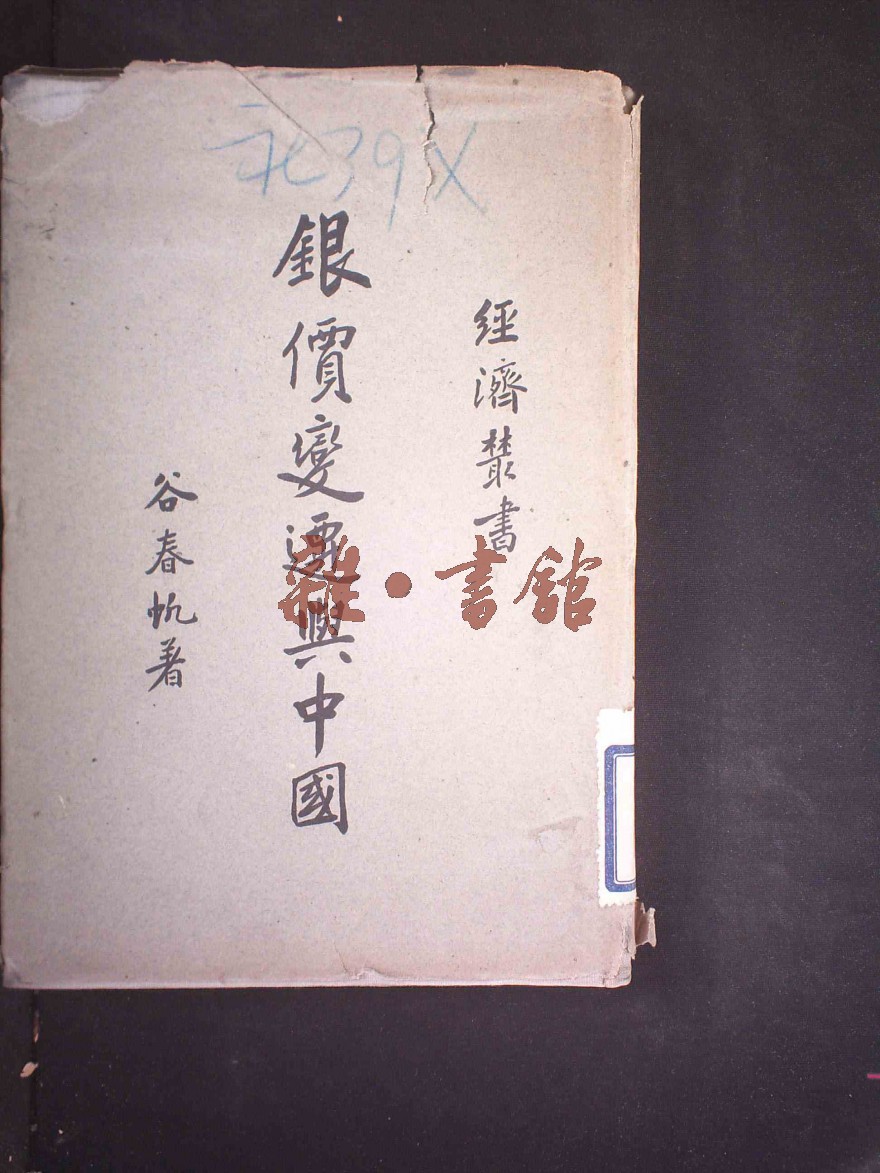 經濟叢書
銀價變遷與中國
谷春帆著
雜·書館